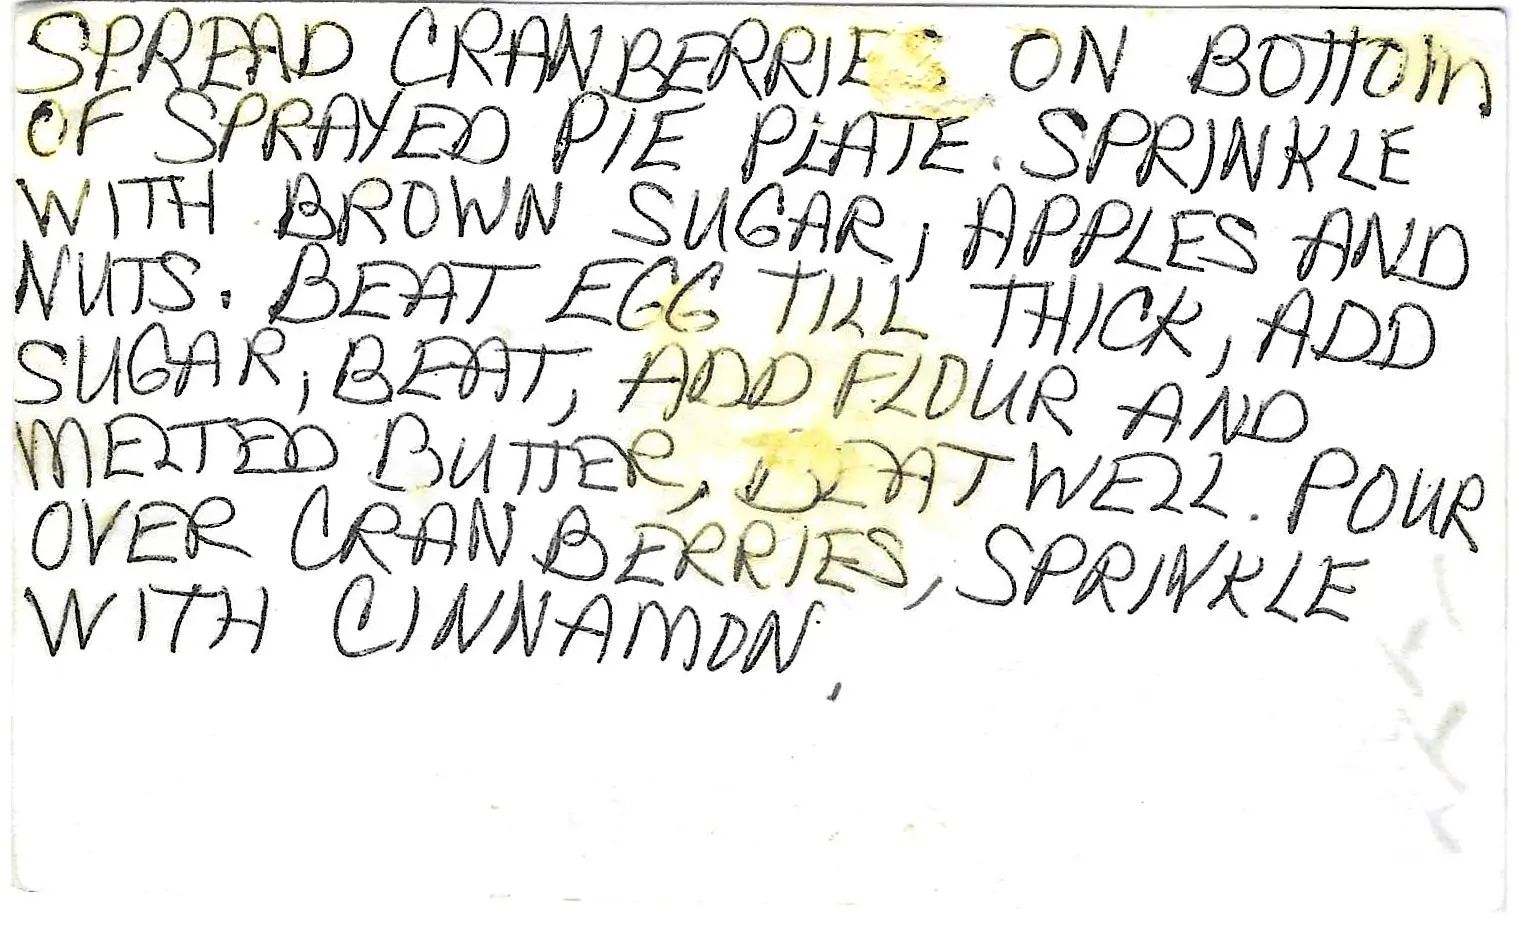 SPREAD CRANBERRIES ON BOTTOM
OF SPRAYED PIE PLATE. SPRINKLE
WITH BROWN SUGAR, APPLES AND
NUTS. BEAT EGG TILL THICK, ADD
SUGAR, BEAT, ADD FLOUR AND
MELTED BUTTER, BEAT WELL. POUR
OVER CRANBERRIES, SPRINKLE
WITH CINNAMON.